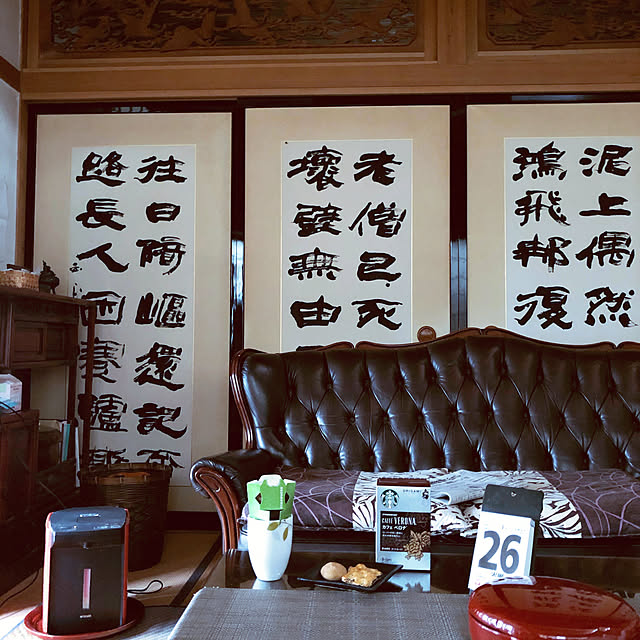 泥上偶然
鴻飛那復
老僧已死
壞壁無由
往日崎嶇還記否
路長人困蹇驢嘶
CAFFÈ VERONA
カフェ ベロナ
26